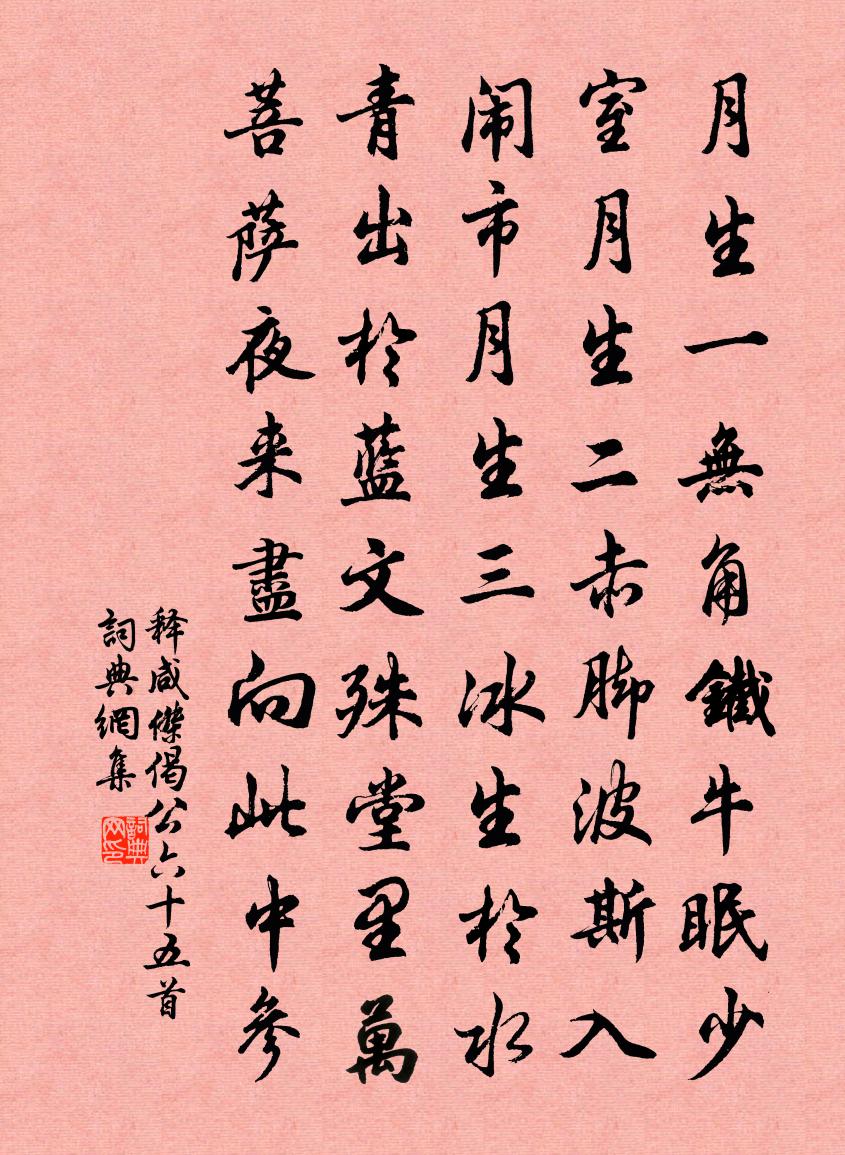 月生一無角鐵牛眠少
室月生二赤脚波斯入
闹市月生三冰生於水
青出於藍文殊堂里萬
菩萨夜来盡向此中參
释咸傑偈公六十五首
詞典網集
詞典网印